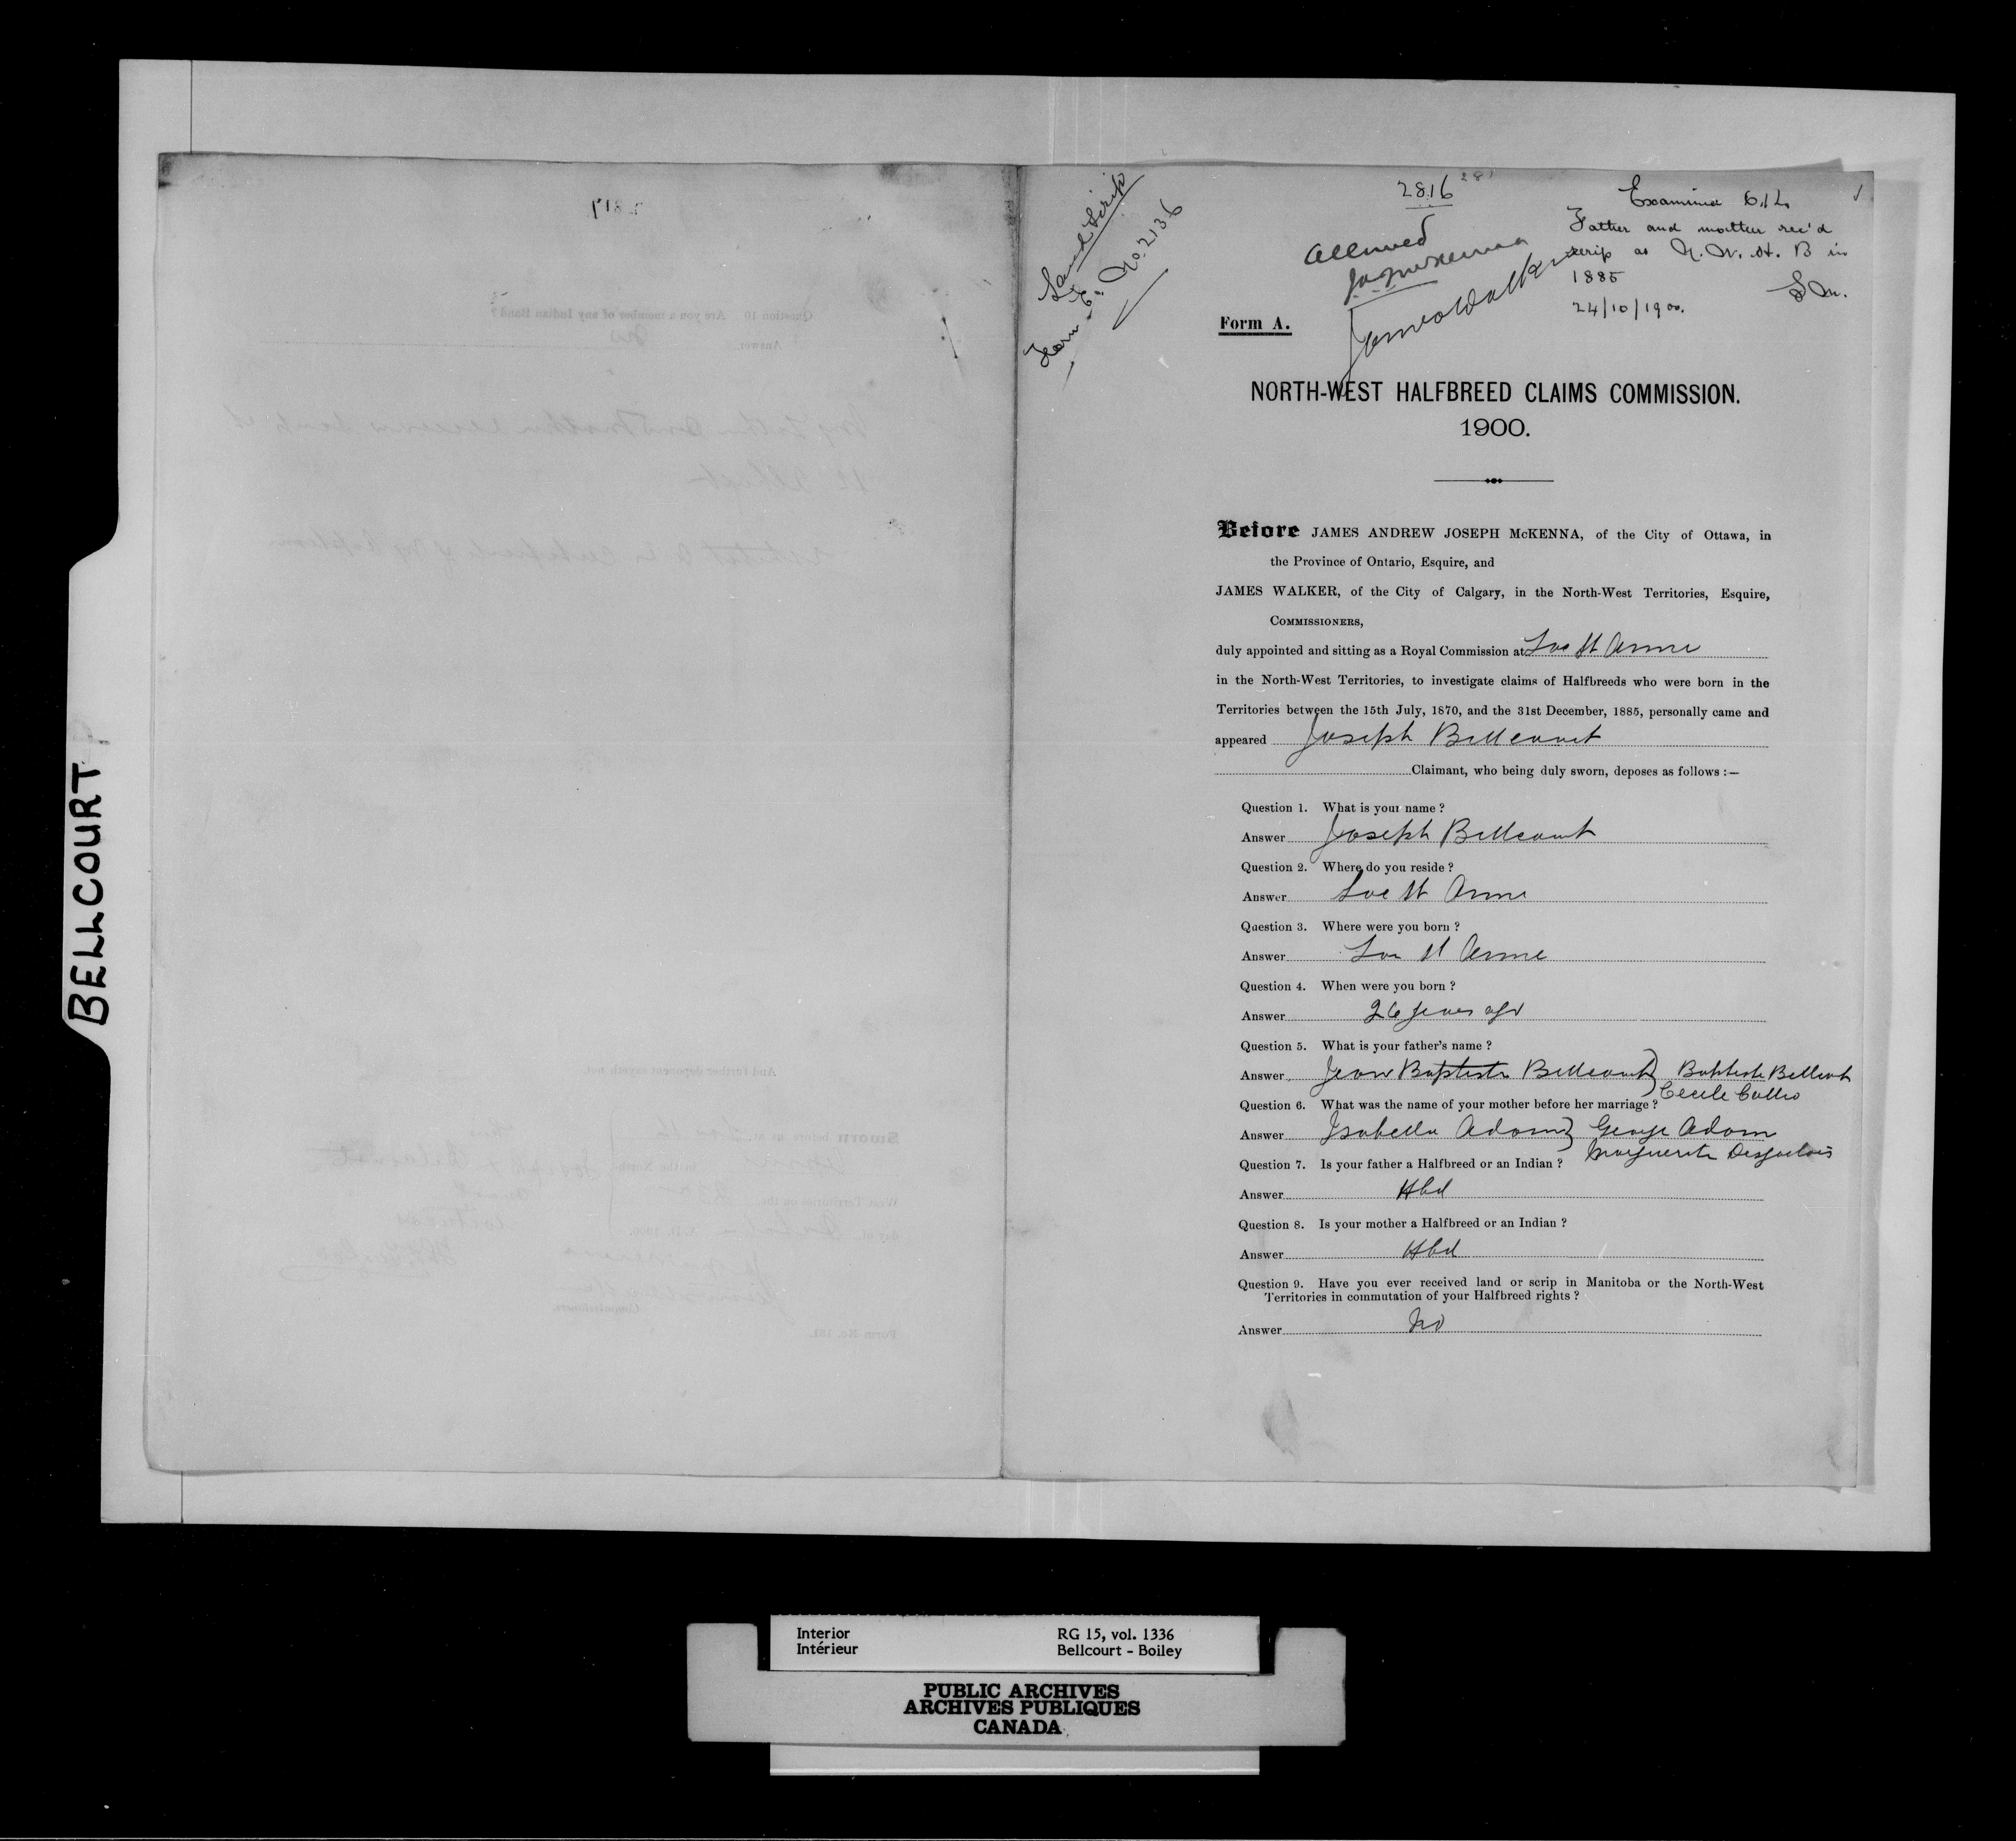 BELLCOURT
Land Scrip
Form E. No. 2136
2816
Allowed
JAJ McKenna
James Walker
Examined
Father and mother rec'd
scrip as N. W. H. B in
1885
24/10/1900.
Form A.
NORTH-WEST HALFBREED CLAIMS COMMISSION.
1900.
Before JAMES ANDREW JOSEPH McKENNA, of the City of Ottawa, in
the Province of Ontario, Esquire, and
JAMES WALKER, of the City of Calgary, in the North-West Territories, Esquire,
COMMISSIONERS,
duly appointed and sitting as a Royal Commission at Lac St Anne
in the North-West Territories, to investigate claims of Halfbreeds who were born in the
Territories between the 15th July, 1870, and the 31st December, 1885, personally came and
appeared Joseph Bellcourt
Claimant, who being duly sworn, deposes as follows :—
Question 1. What is your name ?
Answer Joseph Bellcourt
Question 2. Where do you reside ?
Answer Lac St Anne
Question 3. Where were you born ?
Answer Lac St Anne
Question 4. When were you born ?
Answer 26 years ago
Question 5. What is your father's name ?
Answer Jean Baptiste Bellcourt } Baptiste Bellcourt
Cecile Callio
Question 6. What was the name of your mother before her marriage ?
Answer Isabella Adam } George Adam
Marguerite Desjarlais
Question 7. Is your father a Halfbreed or an Indian ?
Answer Hbd
Question 8. Is your mother a Halfbreed or an Indian ?
Answer Hbd
Question 9. Have you ever received land or scrip in Manitoba or the North-West
Territories in commutation of your Halfbreed rights ?
Answer No
Interior
Intérieur
RG 15, vol. 1336
Bellcourt - Boiley
PUBLIC ARCHIVES
ARCHIVES PUBLIQUES
CANADA